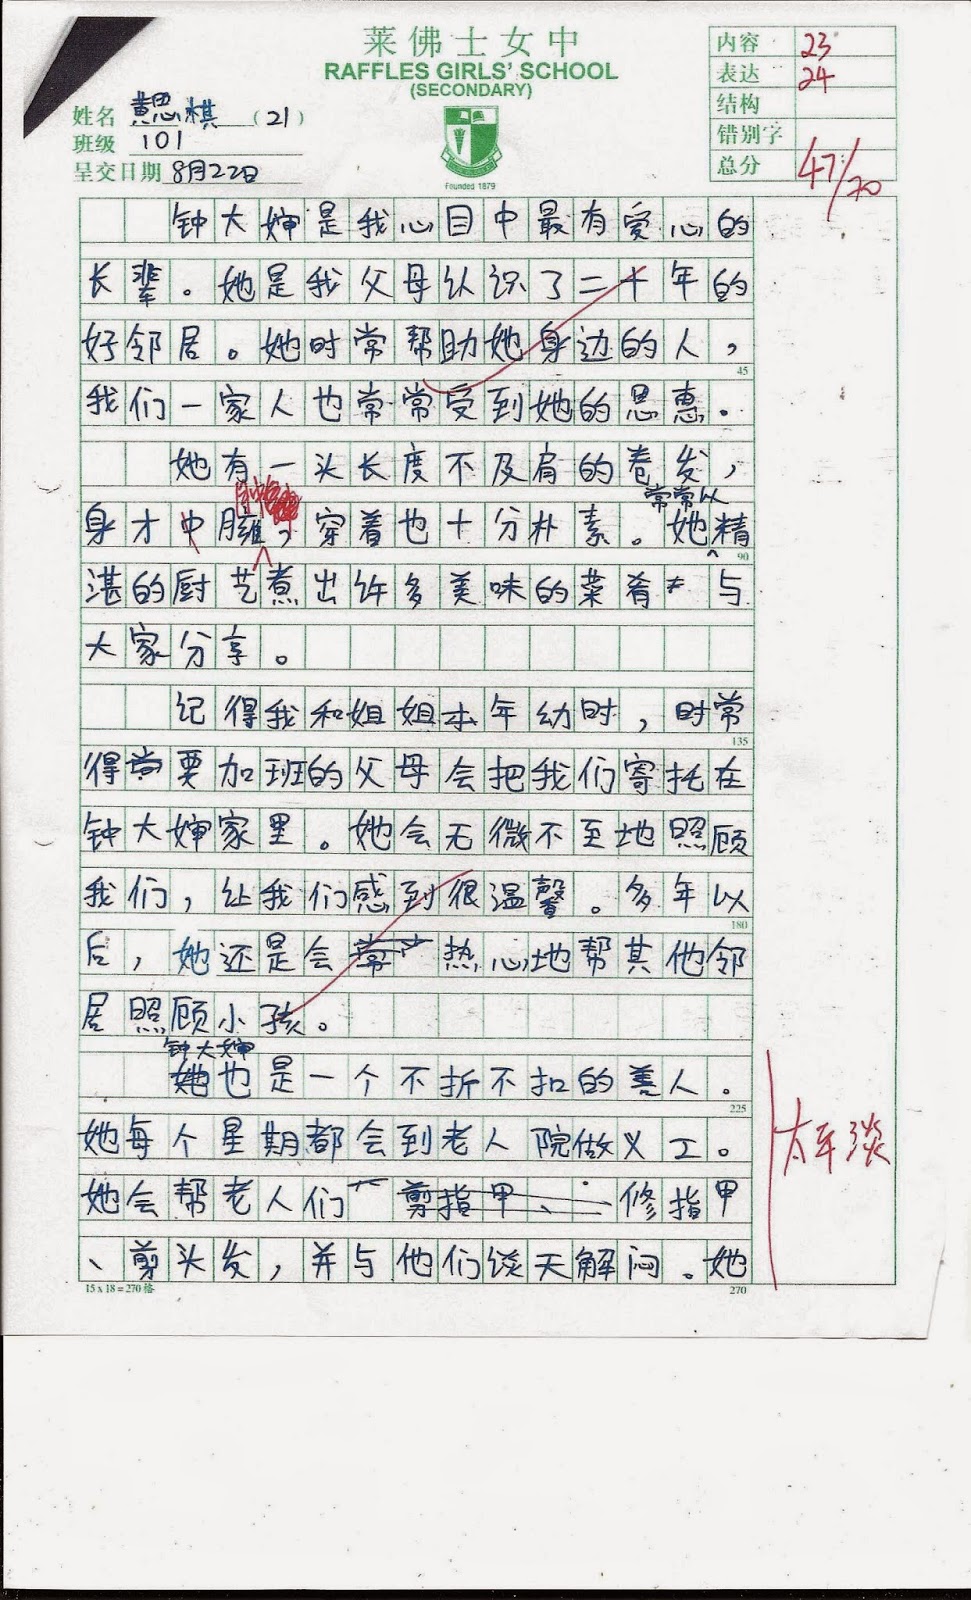 莱佛士女中
RAFFLES GIRLS' SCHOOL
(SECONDARY)
Founded 1879
姓名 黄思棋 (21)
班级 101
呈交日期 8月22日
内容 23
表达 24
结构
错别字
总分 47/70
钟大婶是我心目中最有爱心的
长辈。她是我父母认识了二十年的
好邻居。她时常帮助她身边的人,
45
我们一家人也常常受到她的恩惠。
她有一头长度不及肩的卷发,
常常以
身才中臃,穿着也十分朴素。她精
90
湛的厨艺煮出许多美味的菜肴 与
大家分享。
记得我和姐姐本年幼时,时常
135
得 要加班的父母会把我们寄托在
钟大婶家里。她会无微不至地照顾
我们,让我们感到很温馨。多年以
180
后,她还是会常 热心地帮其他邻
居照顾小孩。
钟大婶
她也是一个不折不扣的善人。
225
她每个星期都会到老人院做义工。
她会帮老人们 剪指甲、 修指甲
、剪头发,并与他们谈天解闷。她
15 x 18 = 270 格
270
太平淡